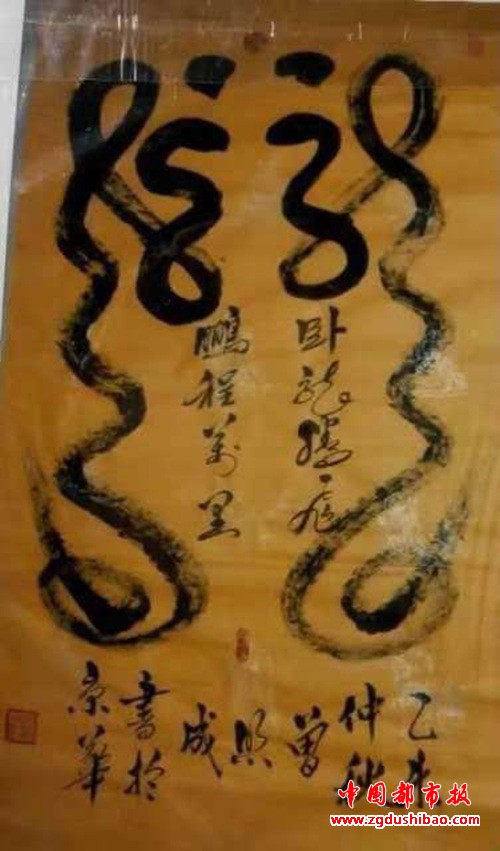 龙
卧龙腾飞
鵬程萬里
乙未
仲秋
曾
照
成
書於
京華
中国都市报
www.zgdushibao.com